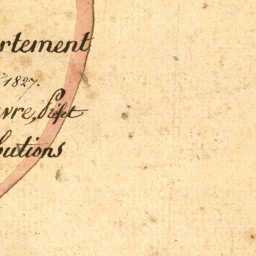 rtement
1827.
vre, Préfet
butions